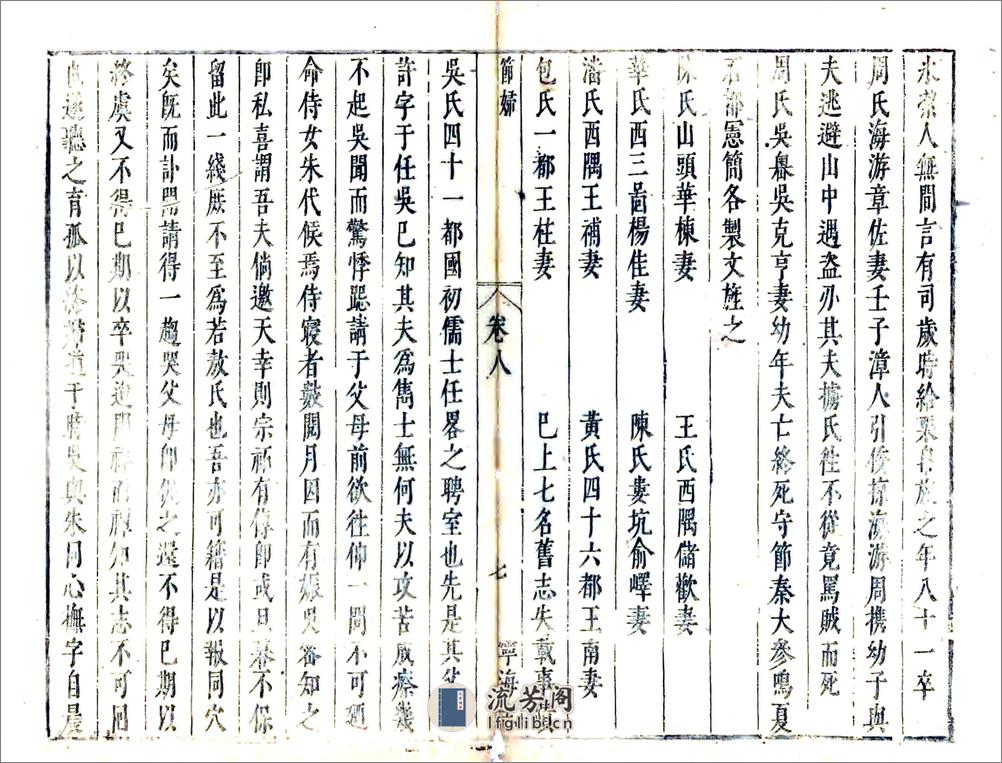 氷檗人無間言有司歲時給粟帛旌之年八十一卒
周氏海游章佐妻壬子漳人引倭掠海游周携幼子與
夫逃避山中遇盗刃其夫擄氏徃不從竟罵賊而死
周氏吳嶴吳克亨妻幼年夫亡終死守節秦大參鳴夏
石都憲簡各製文旌之
陳氏山頭華棟妻 王氏西隅儲歡妻
華氏西三啚楊佳妻 陳氏婁坑俞嶧妻
潘氏西隅王補妻 黃氏四十六都王南妻
包氏一都王柱妻 巳上七名舊志失載事
節婦
卷八 七 寧海
吳氏四十一都國初儒士任畧之聘室也先是其父
許字于任吳巳知其夫爲雋士無何夫以攻苦成瘵幾
不起吳聞而驚悸跽請于父母前欲徃仰一問不可廼
命侍女朱代候焉侍寢者數閱月因而有娠吳審知之
即私喜謂吾夫倘邀天幸則宗祊有傳即或旦暮不保
留此一綫厥不至爲若敖氏也吾亦可籍是以報同穴
矣既而訃聞請得一趨哭父母卽從之還不得巳期以
終虞又不得巳期以卒哭進即祔而禫知其志不可回
也遂聽之育孤以終婦道于時吳與朱同心撫字自是
流芳阁
lfglib.cn